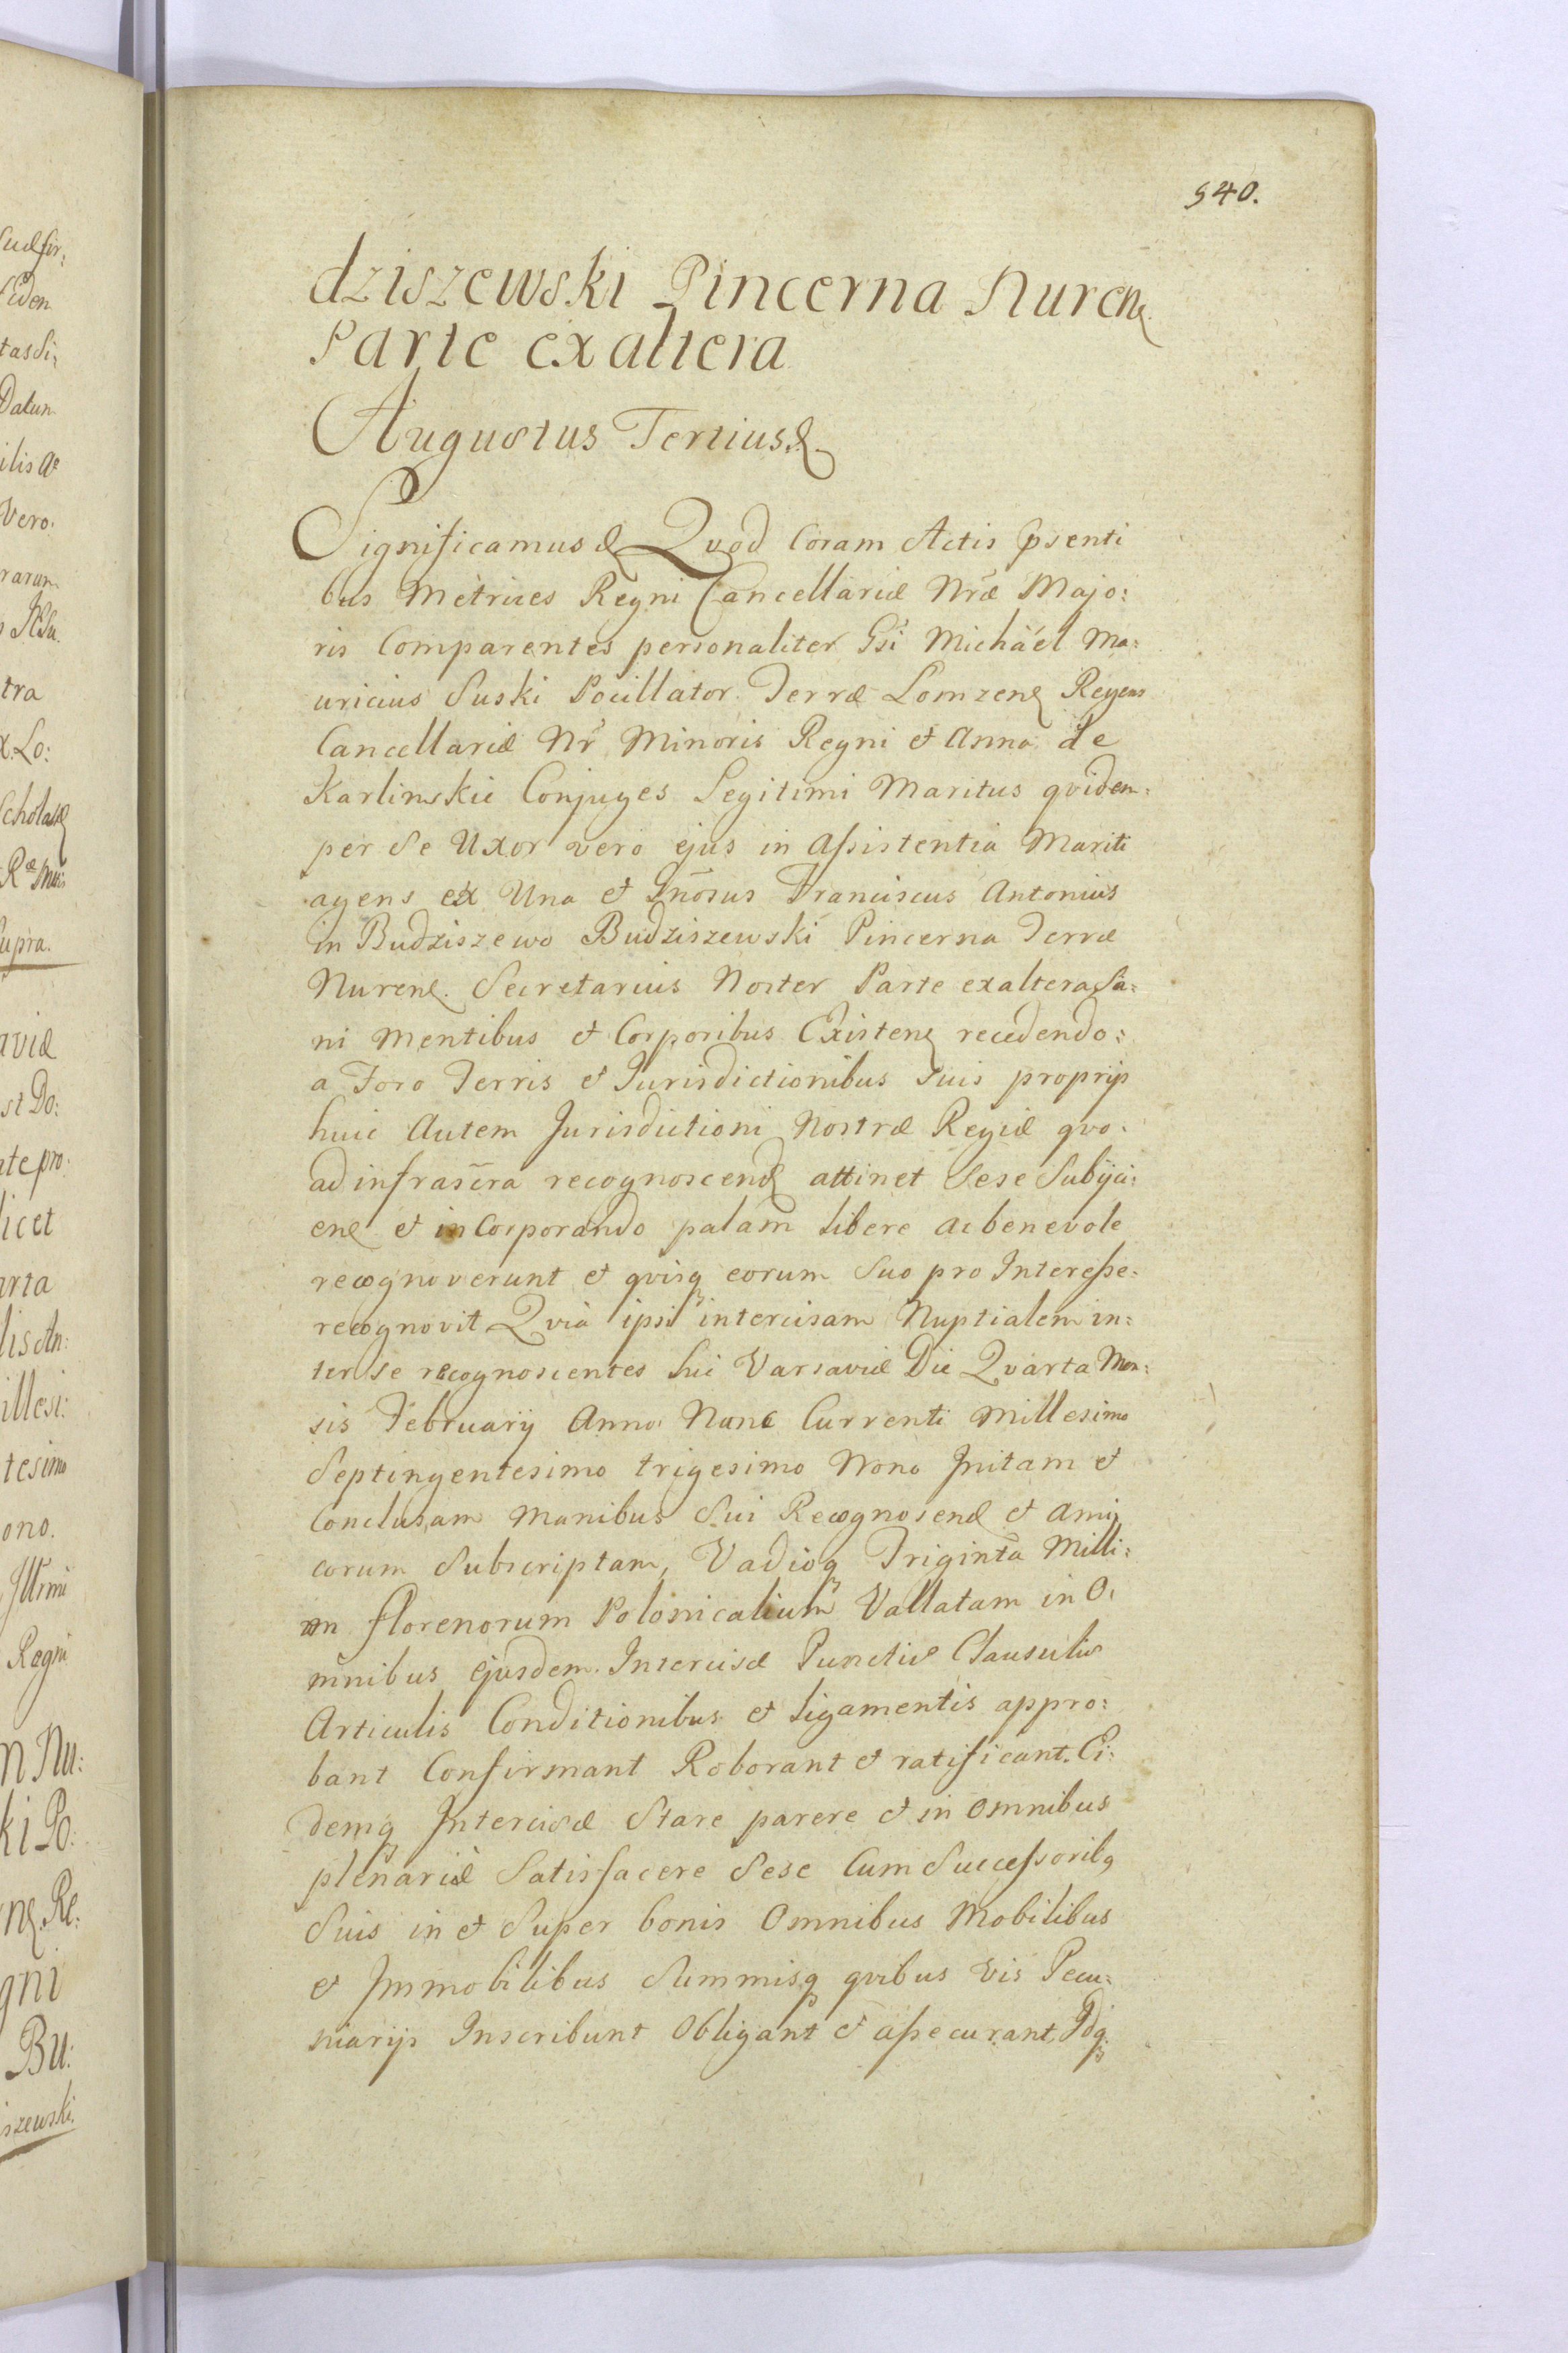 540.
dziszewski Pincerna Nuren
Parte exaltera
Augustus Tertius &
Significamus & Qvod Coram Actis pṡenti
bus Metrices Regni Cancellariæ Nræ Majo:
ris Comparentes personaliter Gsi Michael Ma:
uricius Suski Pocillator Terræ Lomzen Regens
Cancellariæ Nr Minoris Regni et Anna de
Karlinskie Conjuges Legitimi Maritus qviden:
per Se Uxor vero ejus in Assistentia Mariti
agens ex Una et Gnosus Franciscus Antonius
in Budziszewo Budziszewski Pincerna Terræ
Nuren. Secretarius Noster Parte exaltera Sa:
ni Mentibus et Corporibus Existen recedendo:
a Foro Terris et Jurisdictionibus Suis proprijs
huic Autem Jurisdictioni Nostræ Regiæ qvo:
ad infrascra recognoscend attinet Sese Subijci:
en et in Corporando palam Libere ac benevole
recognoverunt et qvisq eorum Suo pro Interesse:
recognovit Qvia ipsi intercisam Nuptialem in:
ter se recognoscentes hic Varsaviæ Die Qvarta Men:
sis February Anno Nunc Currenti Millesimo
Septingentesimo trigesimo Nono Initam et
Conclusam Manibus Sui Recognosend et Ami,
corum Subscriptam, Vadioq Triginta Milli:
m florenorum Polonicalium Vallatam in O:
mnibus Ejusdem Intercisæ Punctis Clausulis
Articulis Conditionibus et Ligamentis appro:
bant Confirmant Roborant et ratificant. Ei:
demq Intercisæ Stare parere et in Omnibus
plenariè Satisfacere Sese Cum Successoribq
Suis in et Super bonis Omnibus Mobilibus
et Immobilibus Summisq qvibus Vis Pecu:
niarijs Inscribunt Obligant et assecurant, Idq: